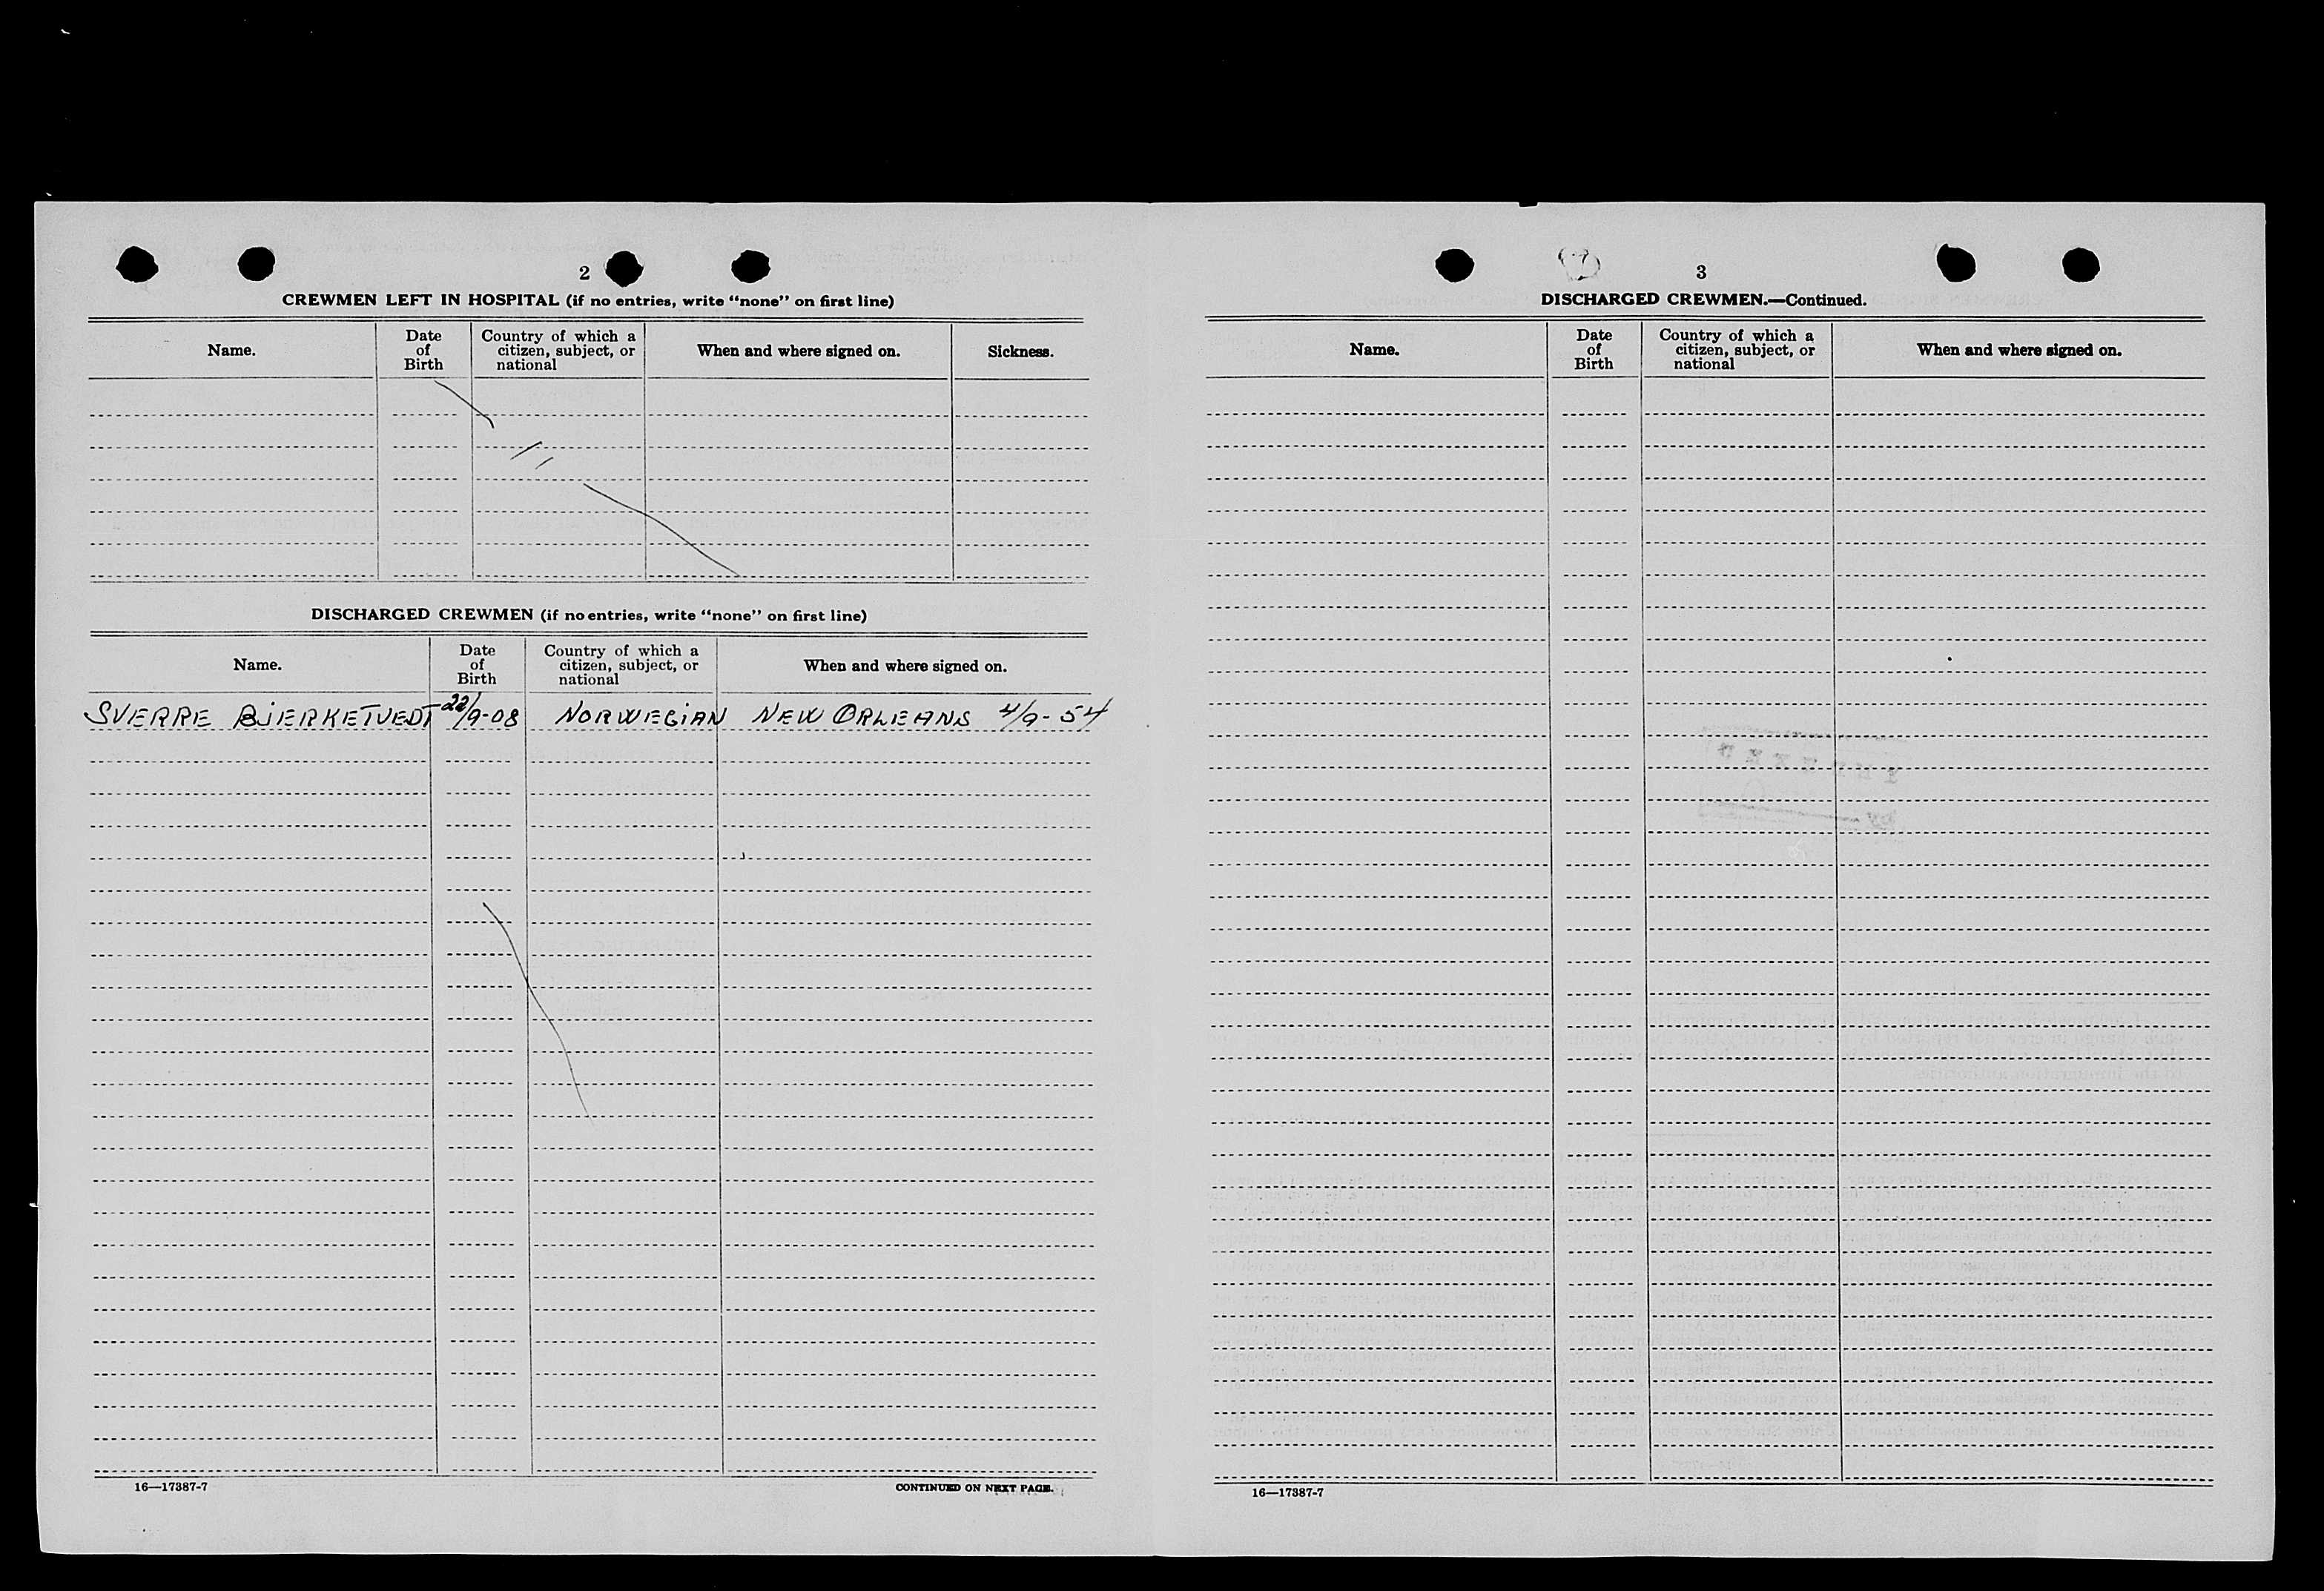 2
CREWMEN LEFT IN HOSPITAL (if no entries, write “none” on first line)
Name.
Date of Birth
Country of which a citizen, subject, or national
When and where signed on.
Sickness.
DISCHARGED CREWMEN (if no entries, write “none” on first line)
Name.
Date of Birth
Country of which a citizen, subject, or national
When and where signed on.
SVERRE BJERKETVEDT 22/9-08 NORWEGIAN NEW ORLEANS 4/9-54
16—17387-7
CONTINUED ON NEXT PAGE.
3
DISCHARGED CREWMEN.—Continued.
Name.
Date of Birth
Country of which a citizen, subject, or national
When and where signed on.
16—17387-7